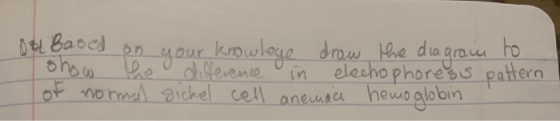 Q2L Based on your knowloge draw the diagram to
show the difference in elechophoresis pattern
of normal sichel cell anemia hemoglobin